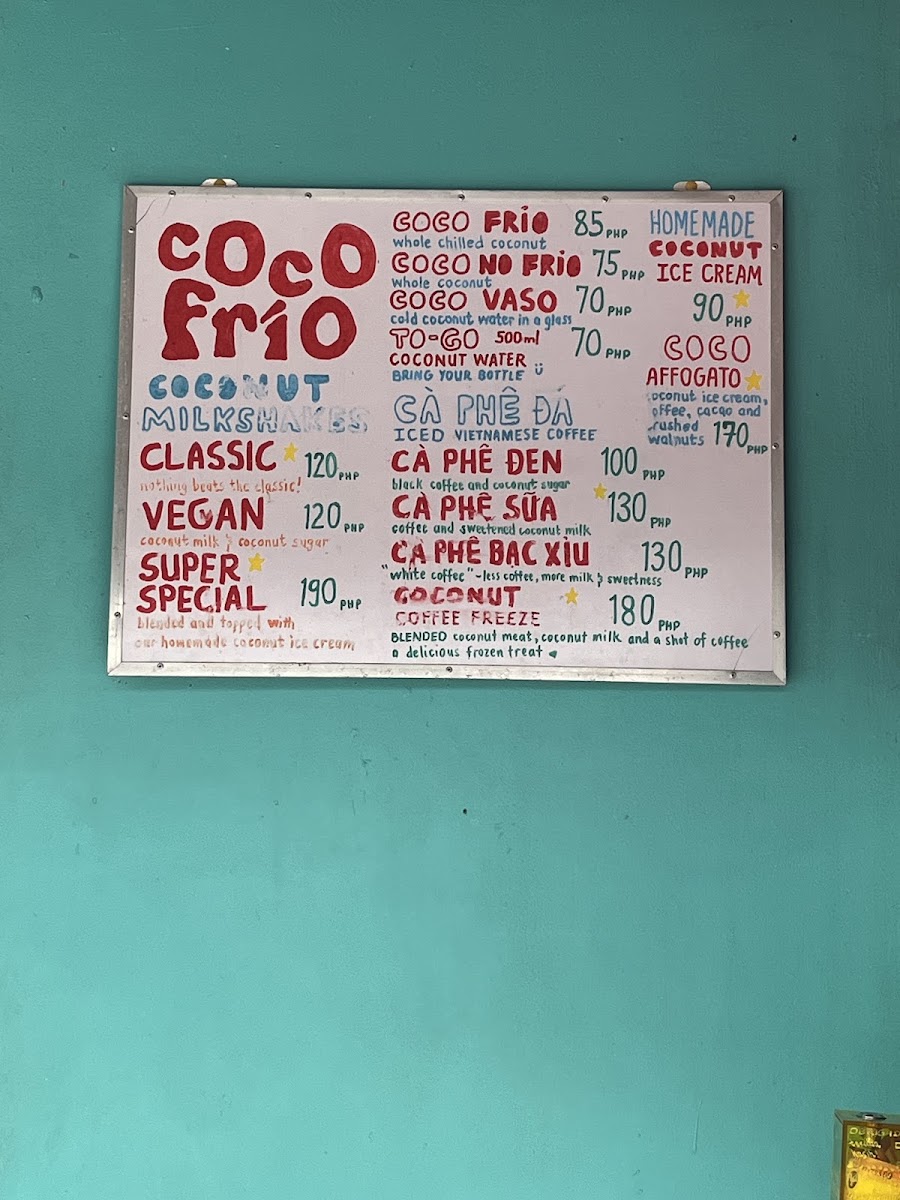 coco
frío
COCONUT
MILKSHAKES
CLASSIC 120 PHP
nothing beats the classic!
VEGAN 120 PHP
coconut milk & coconut sugar
SUPER
SPECIAL 190 PHP
blended and topped with
our homemade coconut ice cream
COCO FRIO 85 PHP
whole chilled coconut
COCO NO FRIO 75 PHP
whole coconut
COCO VASO 70 PHP
cold coconut water in a glass
TO-GO 500ml 70 PHP
COCONUT WATER
BRING YOUR BOTTLE
CÀ PHÊ ĐÁ
ICED VIETNAMESE COFFEE
CÀ PHÊ ĐEN 100 PHP
black coffee and coconut sugar
CÀ PHÊ SỮA 130 PHP
coffee and sweetened coconut milk
CÀ PHÊ BẠC XỈU 130 PHP
"white coffee" - less coffee, more milk & sweetness
COCONUT
COFFEE FREEZE 180 PHP
BLENDED coconut meat, coconut milk and a shot of coffee
a delicious frozen treat
HOMEMADE
COCONUT
ICE CREAM
90 PHP
COCO
AFFOGATO
coconut ice cream,
coffee, cacao and
crushed
walnuts 170 PHP